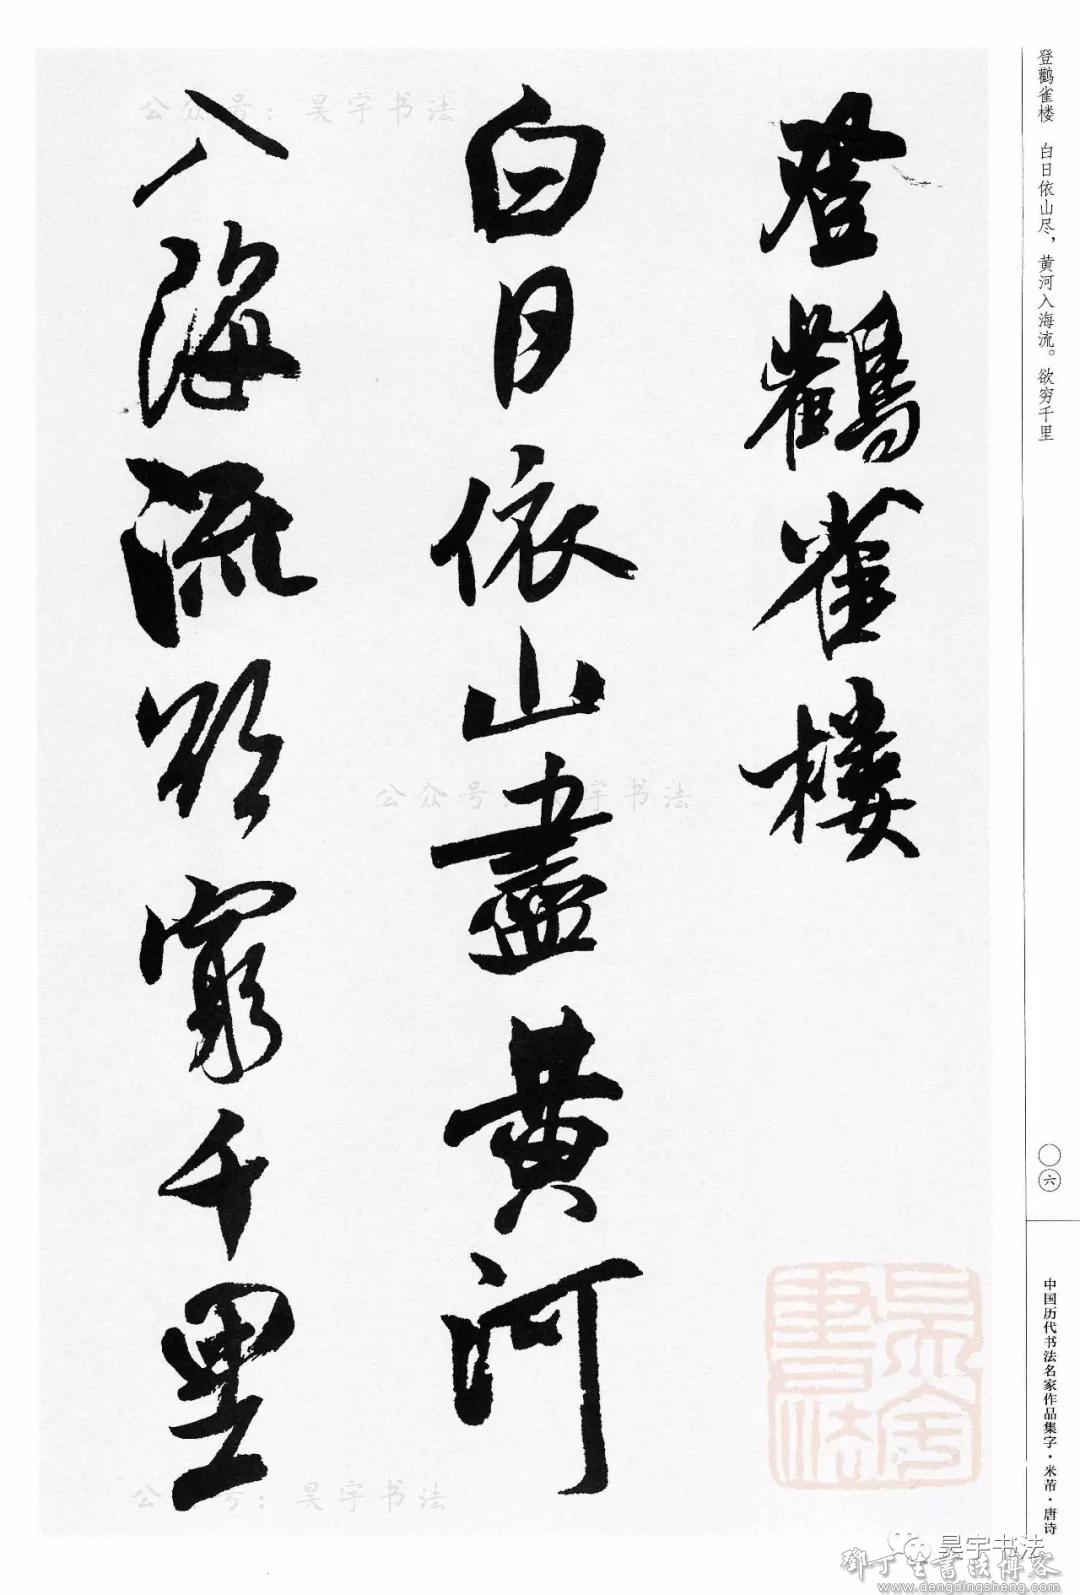 登鸛雀楼 白日依山尽，黄河入海流。欲穷千里
登鸛雀樓
白日依山盡黄河
入海流欲窮千里
〇六
中国历代书法名家作品集字·米芾·唐诗
公众号：昊宇书法
公众号：昊宇书法
公众号：昊宇书法
昊宇書法
昊宇书法
鄧丁生書法博客
www.dengdingsheng.com